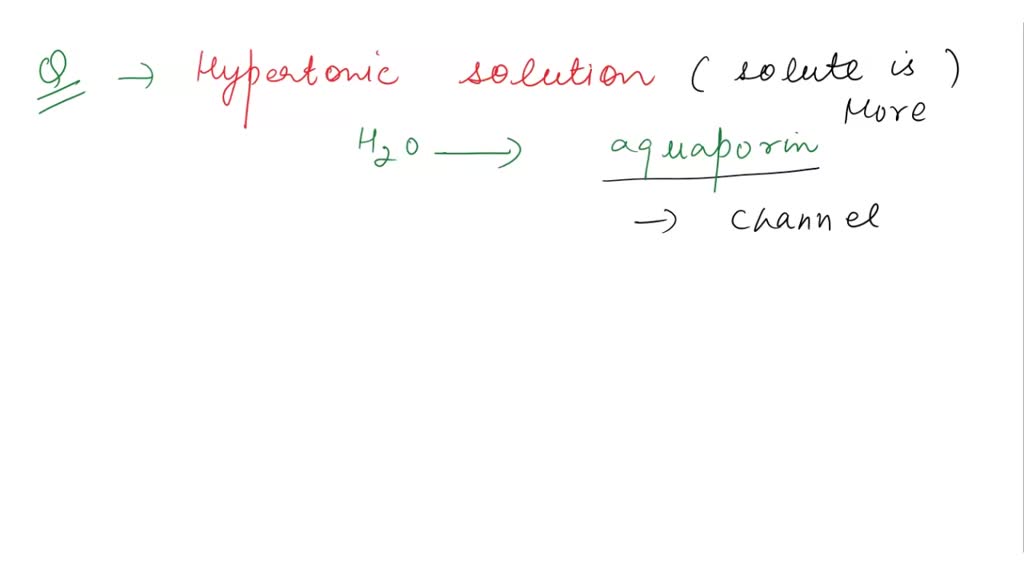 Q → Hypertonic solution ( solute is )
More
H2O → aquaporin
→ channel